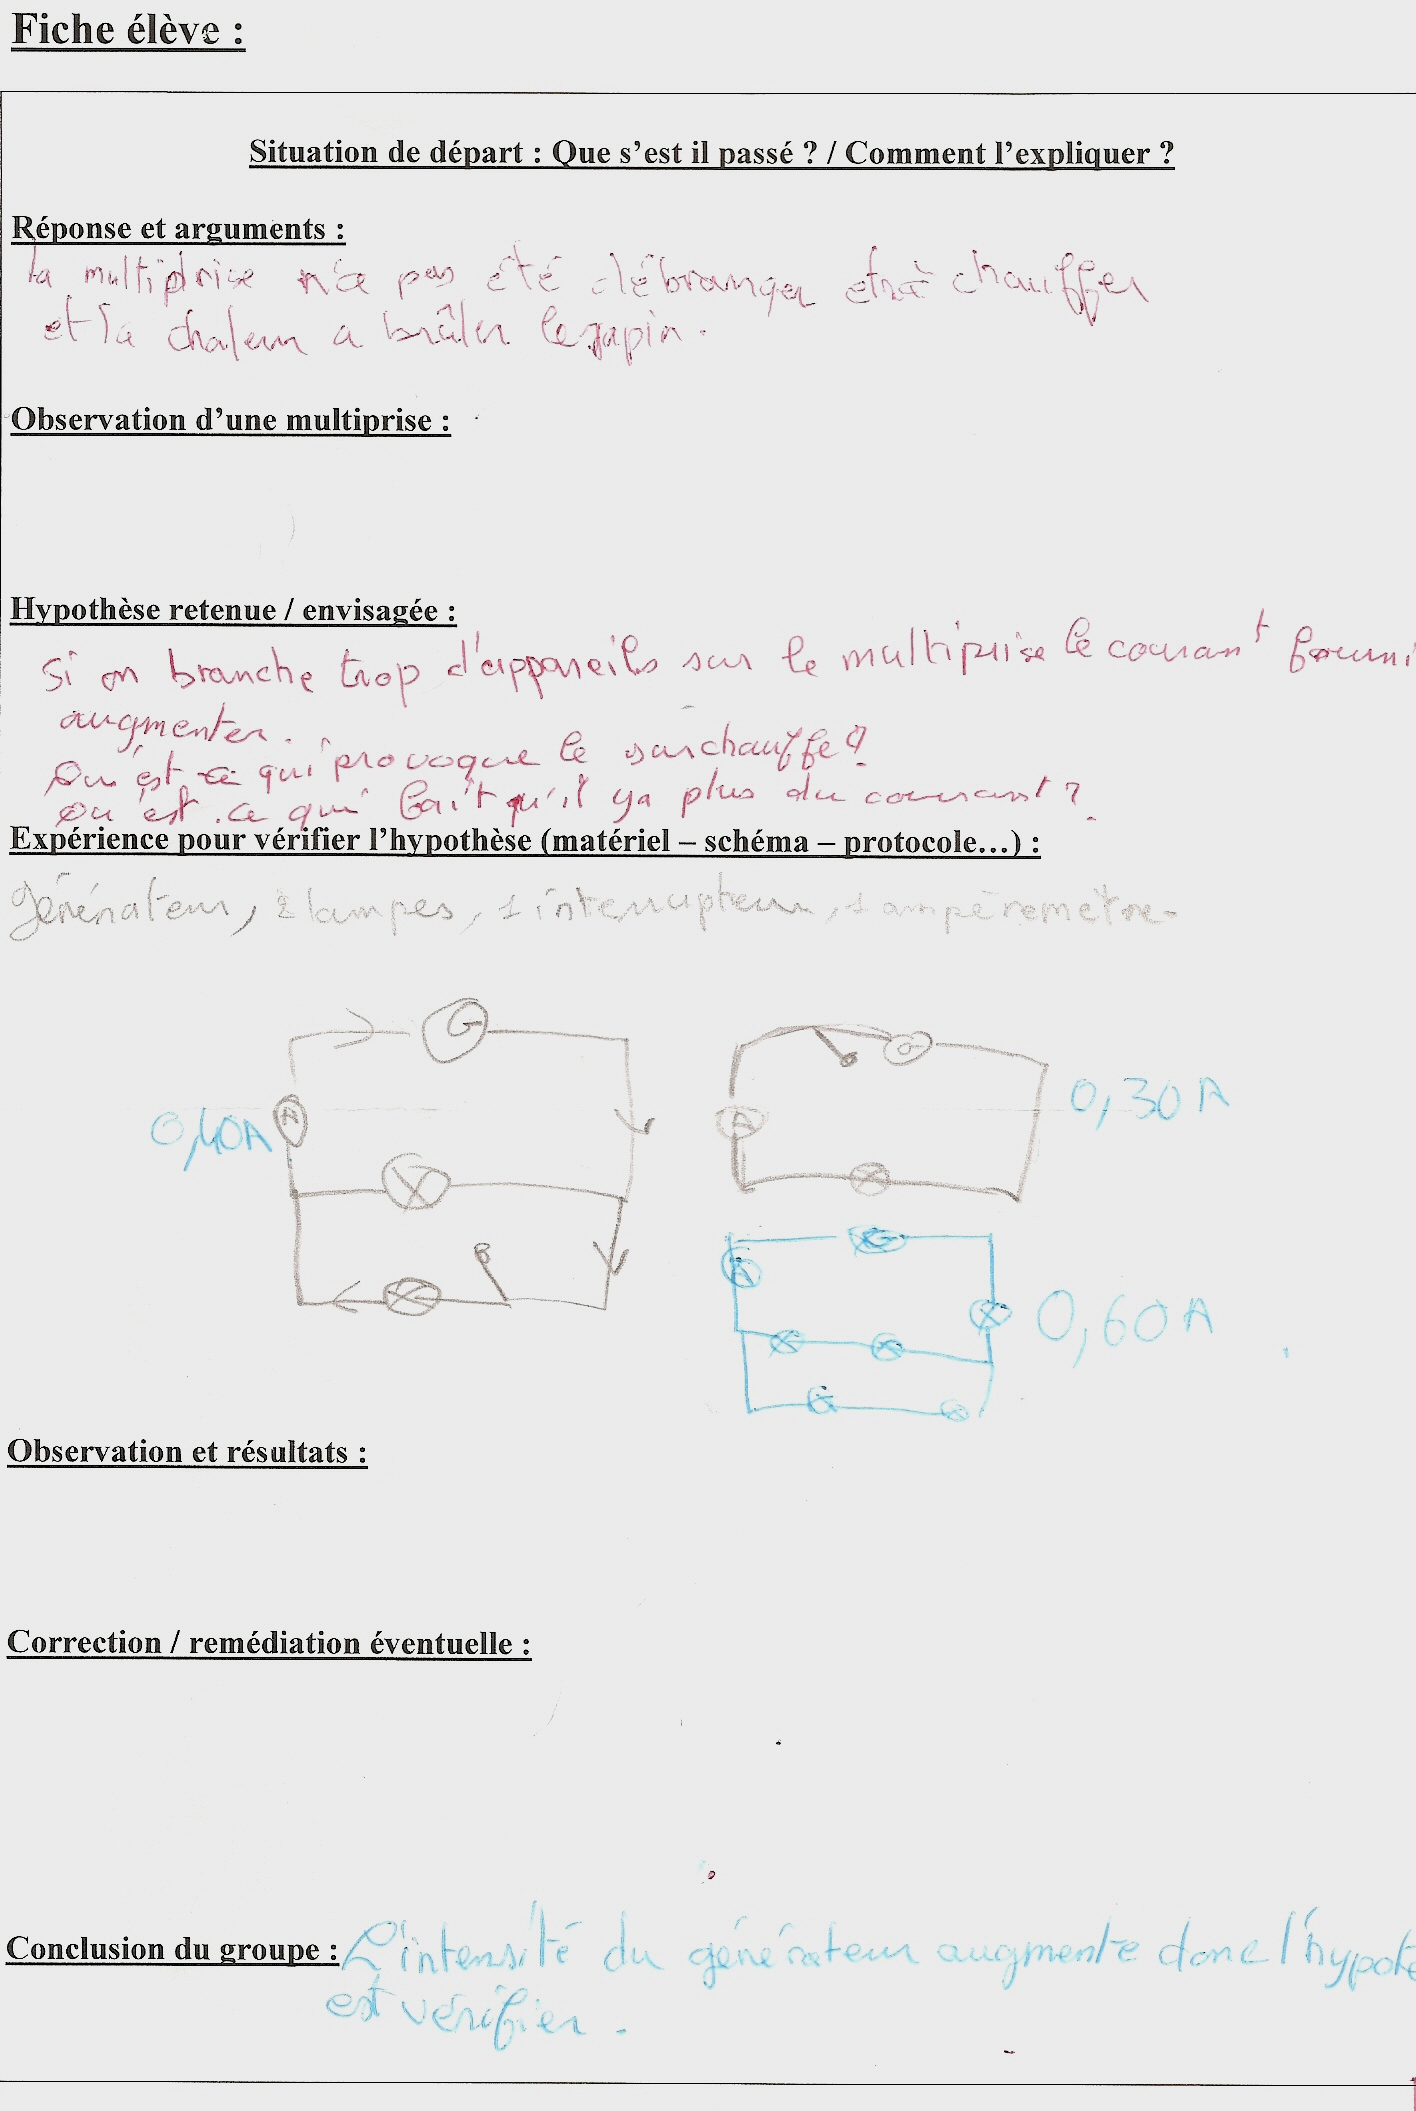 Fiche élève :
Situation de départ : Que s'est il passé ? / Comment l'expliquer ?
Réponse et arguments :
la multiprise n'a pas été débranger et à chauffer
et la chaleur a brûler le sapin.
Observation d'une multiprise :
Hypothèse retenue / envisagée :
Si on branche trop d'appareils sur le multiprise le courant fourni
augmenter.
Qu'est ce qui provoque le surchauffe ?
Qu'est ce qui fait qu'il y a plus du courant ?
Expérience pour vérifier l'hypothèse (matériel – schéma – protocole…) :
générateur, 2 lampes, 1 interrupteur, 1 ampèremètre.
G
G
0,30 A
A
0,40A
A
G
A
0,60 A
Observation et résultats :
Correction / remédiation éventuelle :
Conclusion du groupe : L'intensité du générateur augmente donc l'hypote
est vérifier.